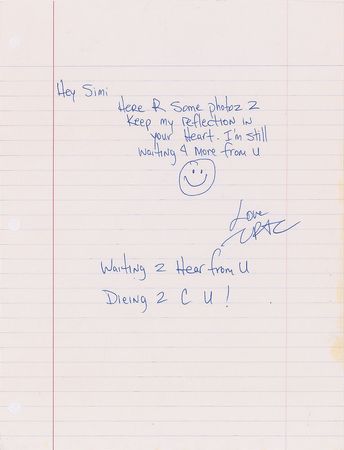 Hey Simi
Here R Some photoz 2
Keep my reflection in
your Heart. I'm still
waiting 4 more from U
Love
2PAC
Waiting 2 Hear from U
Dieing 2 C U!